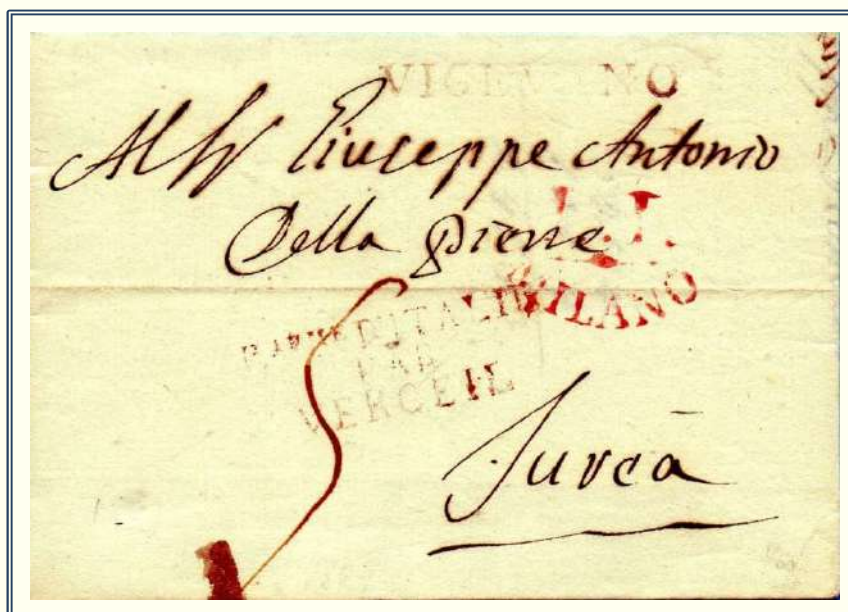 VIGEVANO
Al Sr Giuseppe Antonio
Della
L.I.
MILANO
D'ITALIE
PAR
VERCEIL
5
Jurea